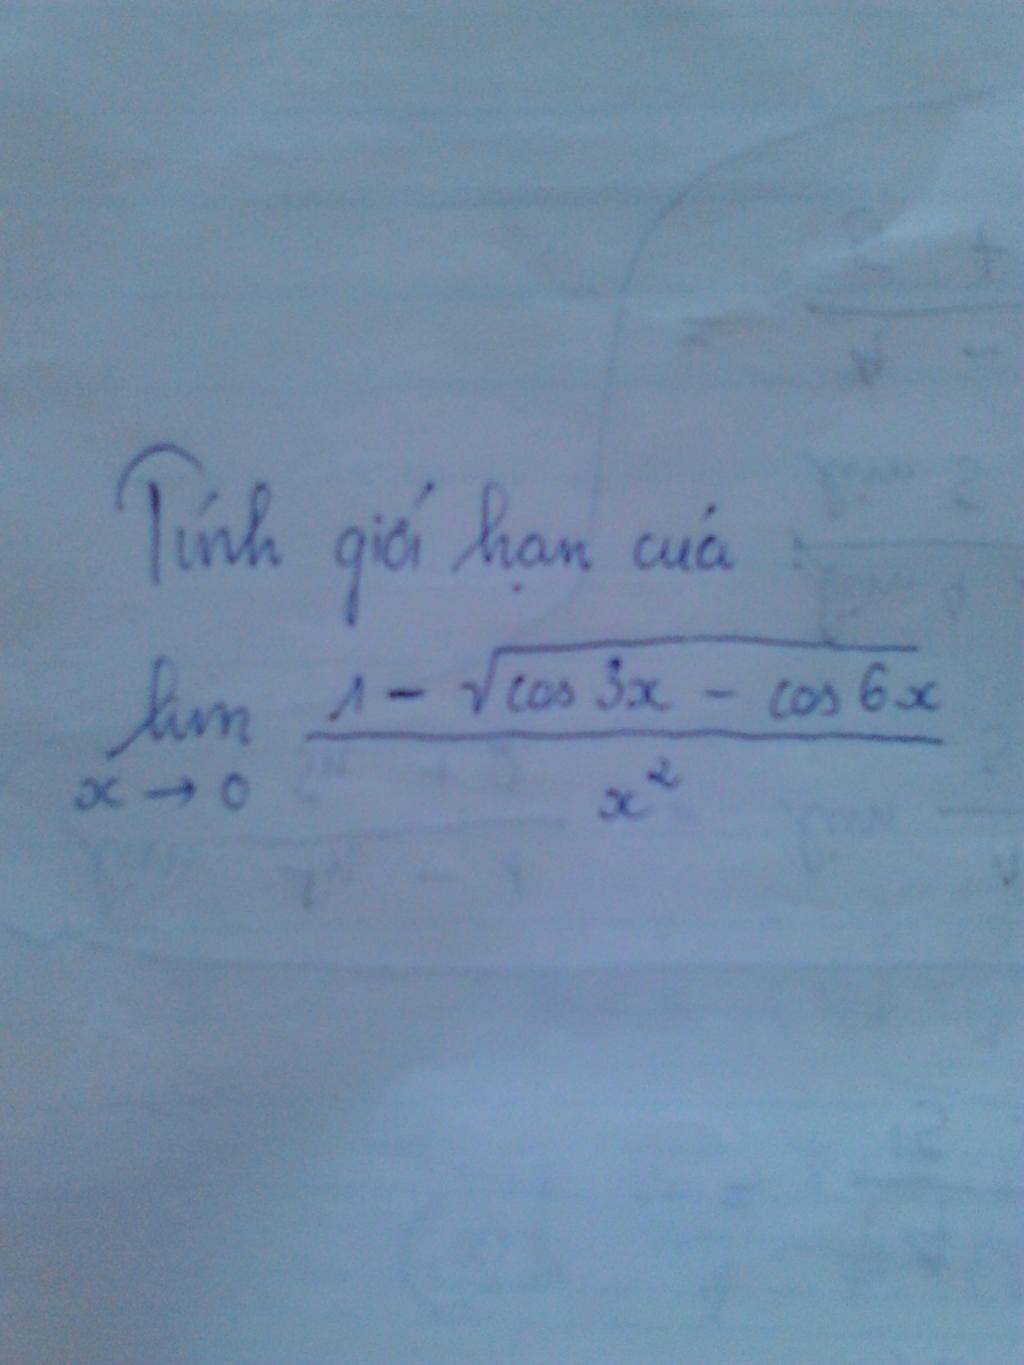 Tính giới hạn của :
lim 1 - √cos 3x - cos 6x
x → 0 x²